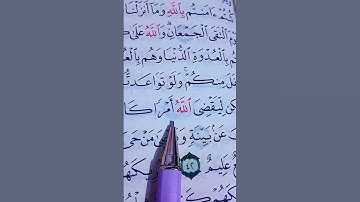 كُنتُمْ ءَامَنتُم بِٱللَّهِ وَمَآ أَنزَلْنَا
ٱلْتَقَى ٱلْجَمْعَانِ ۗ وَٱللَّهُ عَلَىٰ
بِٱلْعُدْوَةِ ٱلدُّنْيَا وَهُم بِٱلْعُ
مِنكُمْ ۚ وَلَوْ تَوَاعَدتُّ
لِّيَقْضِىَ ٱللَّهُ أَمْرًا كَا
عَنۢ بَيِّنَةٍ وَ مَنْ حَىَّ
عَلِيمٌ ٤٢